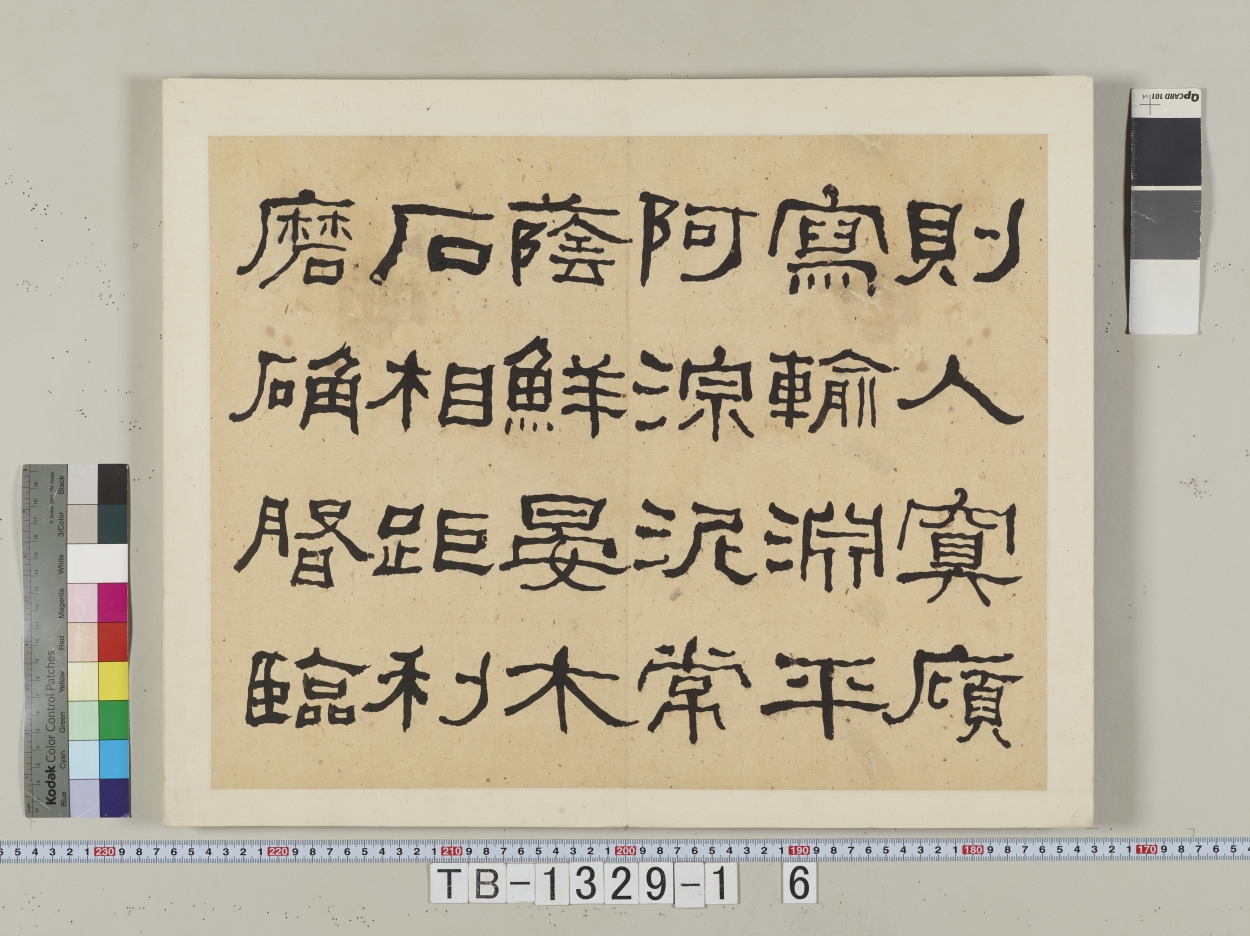 則入冥廎
寫輸淵平
阿淙泥常
蔭鮮晏木
石相距利
磨确磐臨
QPCARD 101
Kodak Color Control Patches
Blue Cyan Green Yellow Red Magenta White 3/Color Black
TB-1329-1 6